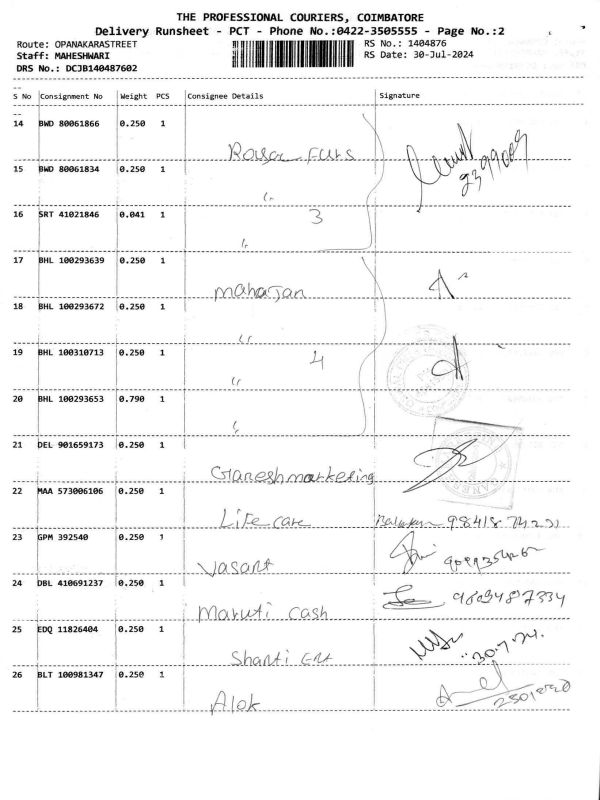 THE PROFESSIONAL COURIERS, COIMBATORE
Delivery Runsheet - PCT - Phone No.:0422-3505555 - Page No.:2
Route: OPANAKARASTREET RS No.: 1404876
Staff: MAHESHWARI RS Date: 30-Jul-2024
DRS No.: DCJB140487602
S No Consignment No Weight PCS Consignee Details Signature
14 BWD 80061866 0.250 1
Furs
15 BWD 80061834 0.250 1
"
16 SRT 41021846 0.041 1 3
"
17 BHL 100293639 0.250 1
mahaJan
18 BHL 100293672 0.250 1
"
19 BHL 100310713 0.250 1 4
"
20 BHL 100293653 0.790 1
"
21 DEL 901659173 0.250 1
Ganesh marketing
22 MAA 573006106 0.250 1
Life care 98418 74231
23 GPM 392540 0.250 1
Vasant
24 DBL 410691237 0.250 1 9809487334
Maruti cash
25 EDQ 11826404 0.250 1
Shanti Ent 30.7.24.
26 BLT 100981347 0.250 1
Alok